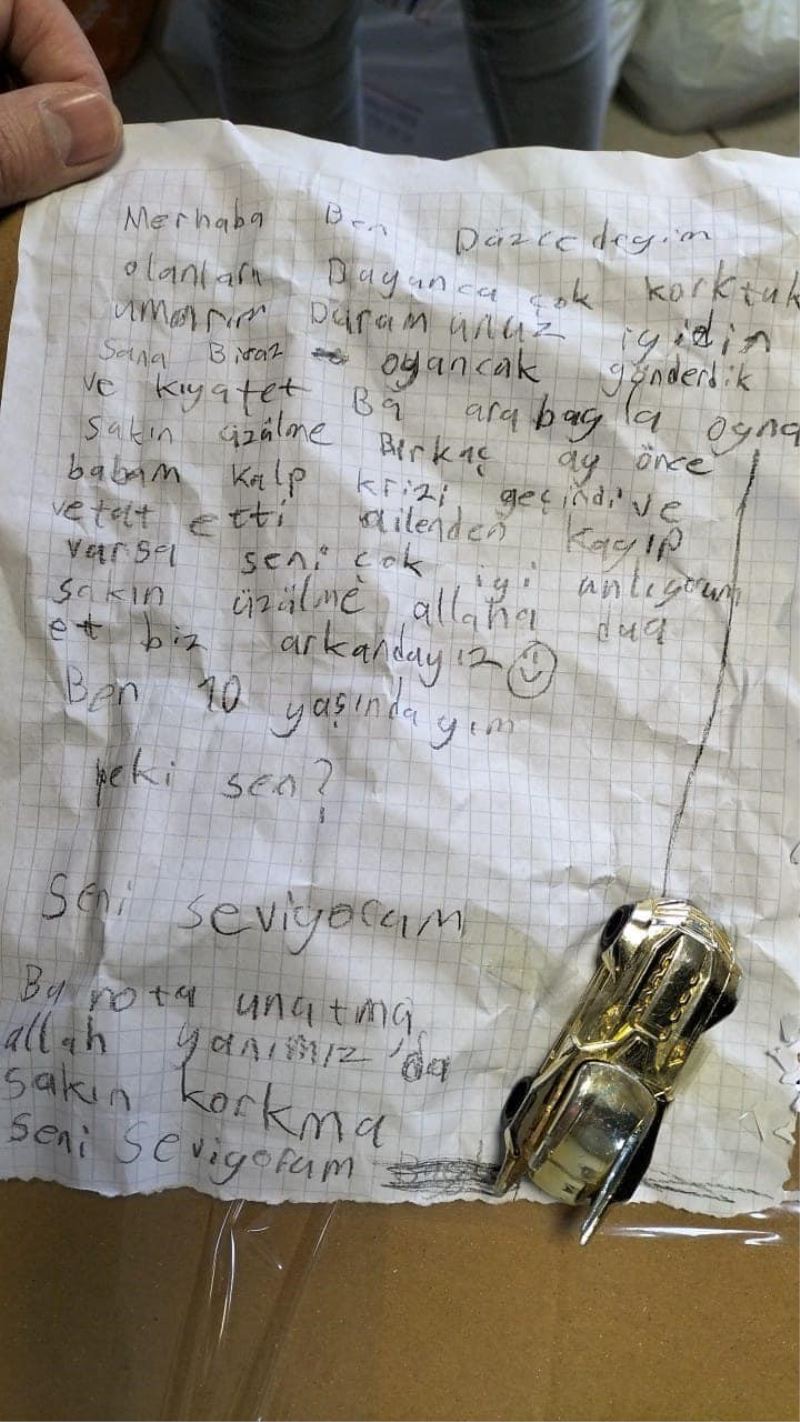 Merhaba Ben Düzcedeyim
olanları Duyunca çok korktuk
umarım Durumunuz iyidir
sana Biraz oyancak gönderdik
ve kıyafet Bu arabayla oyna
sakın üzülme Birkaç ay önce
babam kalp krizi geçirdi ve
vefat etti ailenden kayıp
varsa seni çok iyi anlıyorum
sakın üzülme allaha dua
et biz arkandayız
Ben 10 yaşındayım
peki sen?
Seni seviyorum
Bu nota unutma
allah yanımız'da
sakın korkma
seni seviyorum